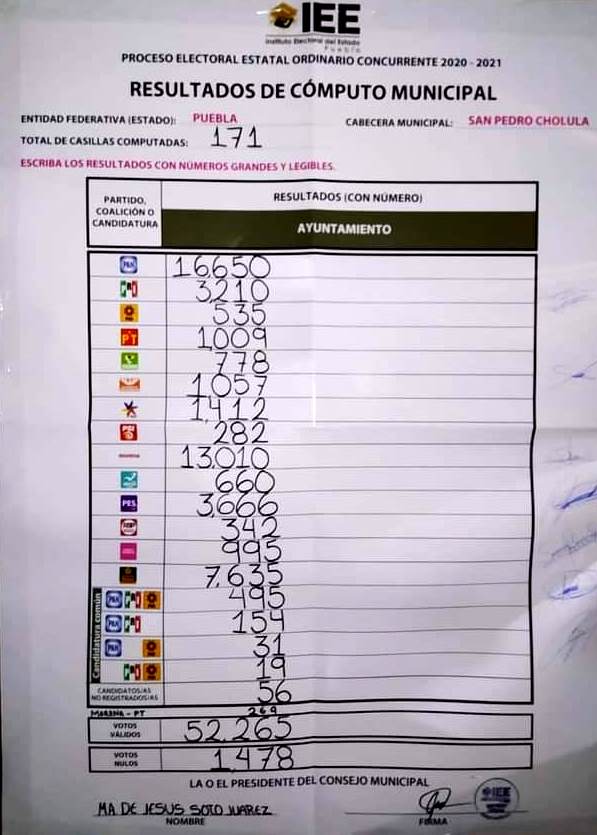 IEE
Instituto Electoral del Estado
Puebla
PROCESO ELECTORAL ESTATAL ORDINARIO CONCURRENTE 2020 - 2021
RESULTADOS DE CÓMPUTO MUNICIPAL
ENTIDAD FEDERATIVA (ESTADO): PUEBLA CABECERA MUNICIPAL: SAN PEDRO CHOLULA
TOTAL DE CASILLAS COMPUTADAS: 171
ESCRIBA LOS RESULTADOS CON NÚMEROS GRANDES Y LEGIBLES.
PARTIDO, COALICIÓN O CANDIDATURA
RESULTADOS (CON NÚMERO)
AYUNTAMIENTO
PAN 16,650
PRI 3,210
535
PT 1,009
778
1,057
1,412
PSI 282
morena 13,010
660
PES 3,666
342
995
7,635
Candidatura común
PAN PRI 495
PAN PRI 154
PAN 31
PRI 19
CANDIDATOS/AS NO REGISTRADOS/AS 56
MORENA - PT 269
VOTOS VÁLIDOS 52,265
VOTOS NULOS 1,478
LA O EL PRESIDENTE DEL CONSEJO MUNICIPAL
MA DE JESUS SOTO JUAREZ
NOMBRE FIRMA
IEE